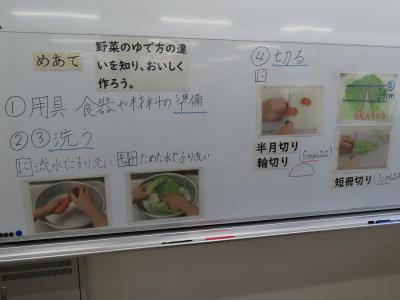 めあて
野菜のゆで方の違
いを知り、おいしく
作ろう。
① 用具 食器や材料の準備
②③ 洗う
に 流水でこすり洗い
キャ ため水でふり洗い
④ 切る
に
半月切り
輪切り
5mmはば
短冊切り
1cmはば